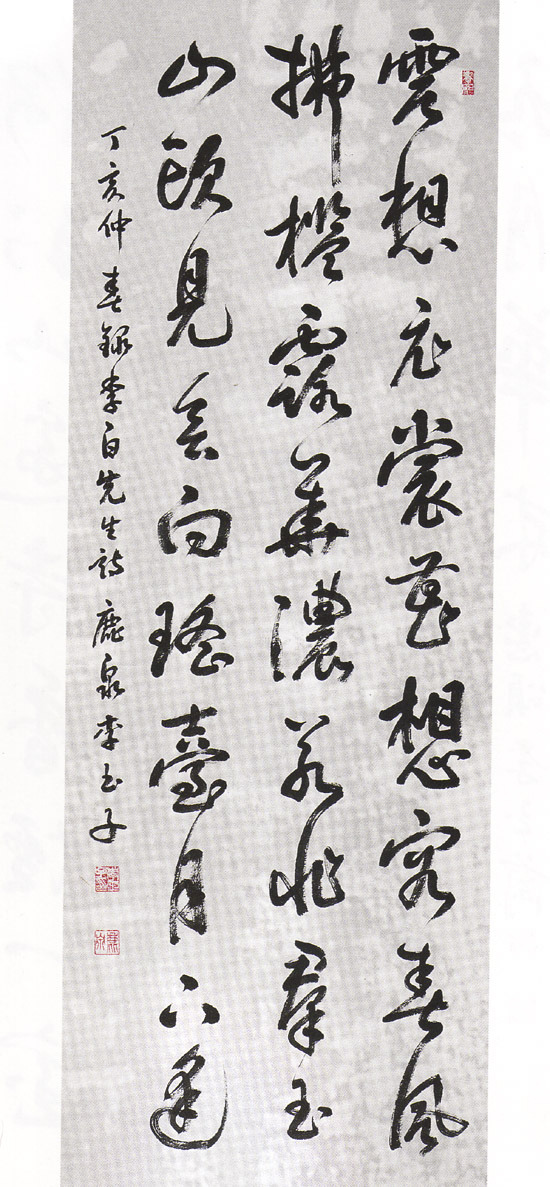 雲想衣裳花想容春風
拂檻露華濃若非羣玉
山頭見會向瑤臺月下逢
丁亥仲春錄李白先生詩 鹿泉李玉子